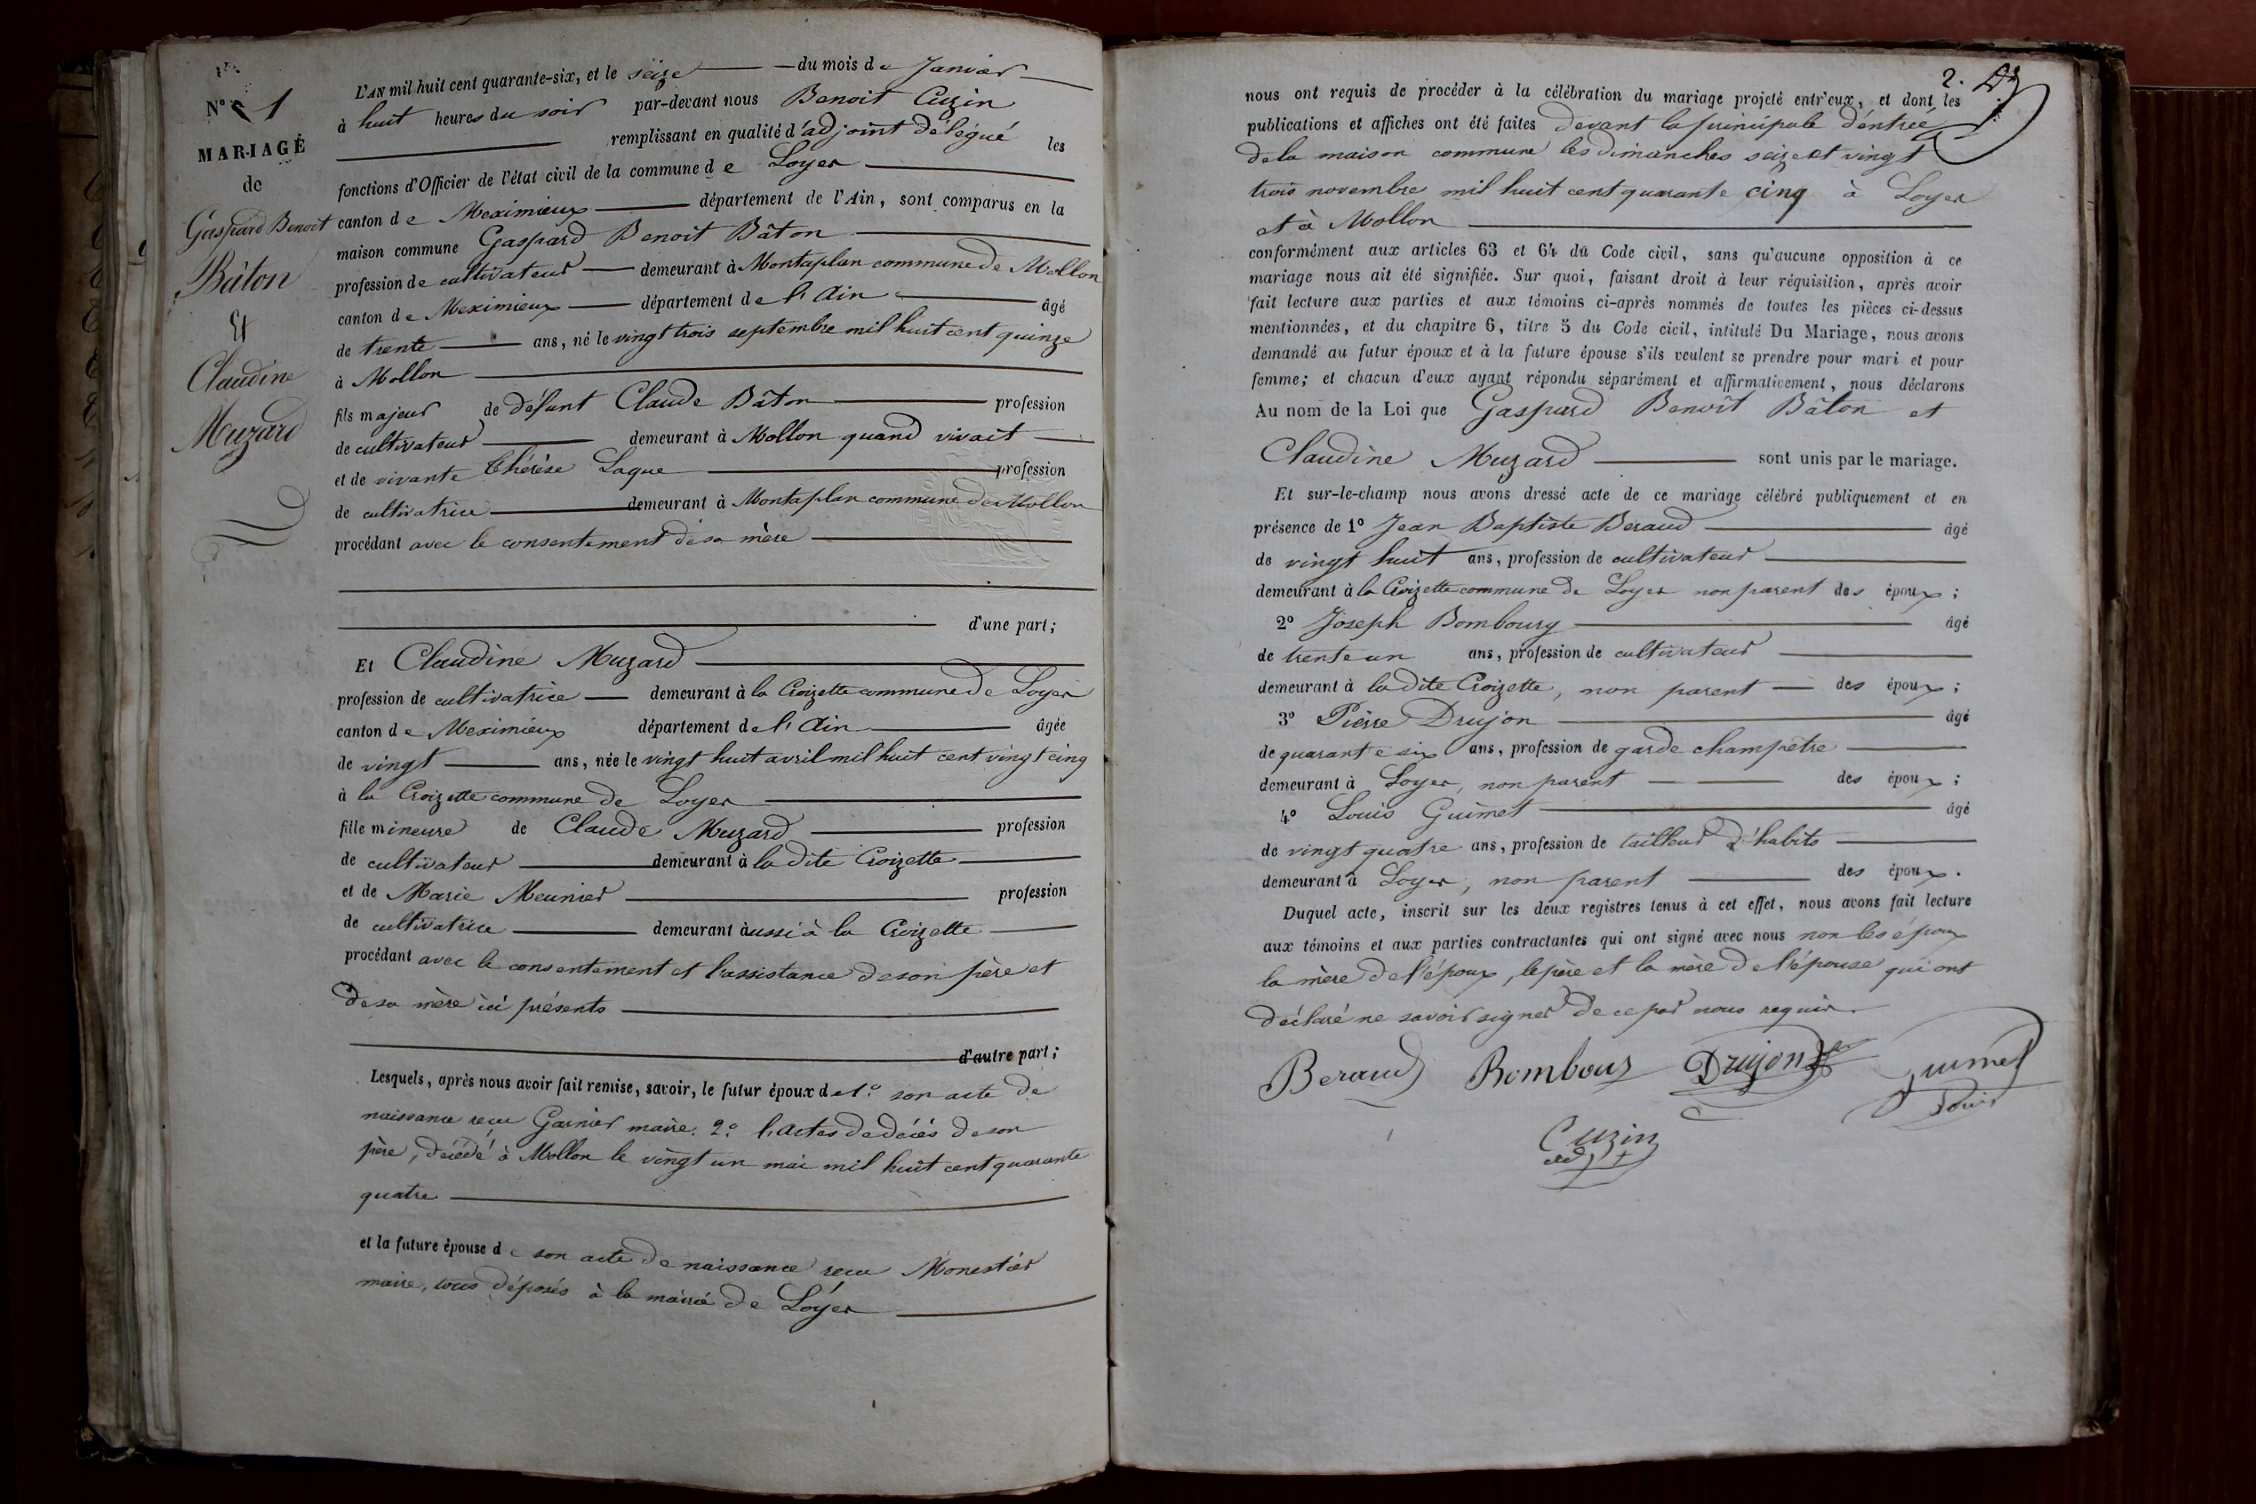 N° 1
MARIAGE
de
Gaspard Benoit
Bâton
Et
Claudine
Muzard
L'AN mil huit cent quarante-six, et le seize du mois de Janvier
à huit heures du soir par-devant nous Benoit Cuzin
remplissant en qualité d'adjoint délégué les
fonctions d'Officier de l'état civil de la commune de Loyer
canton de Meximieux département de l'Ain, sont comparus en la
maison commune Gaspard Benoit Bâton
profession de cultivateur demeurant à Montaplan commune de Mollon
canton de Meximieux département de l'Ain âgé
de trente ans, né le vingt trois septembre mil huit cent quinze
à Mollon
fils majeur de défunt Claude Bâton profession
de cultivateur demeurant à Mollon quand vivait
et de vivante Thérèse Laque profession
de cultivatrice demeurant à Montaplan commune de Mollon
procédant avec le consentement de sa mère
d'une part;
Et Claudine Muzard
profession de cultivatrice demeurant à la Croizette commune de Loyer
canton de Meximieux département de l'Ain âgée
de vingt ans, née le vingt huit avril mil huit cent vingt cinq
à la Croizette commune de Loyer
fille mineure de Claude Muzard profession
de cultivateur demeurant à la dite Croizette
et de Marie Meunier profession
de cultivatrice demeurant aussi à la Croizette
procédant avec le consentement et l'assistance de son père et
de sa mère ici présents
d'autre part;
Lesquels, après nous avoir fait remise, savoir, le futur époux de 1° son acte de
naissance reçu Garnier maire. 2° l'actes de décés de son
père, décédé à Mollon le vingt un mai mil huit cent quarante
quatre
et la future épouse de son acte de naissance reçu Monestier
maire, tous déposés à la mairie de Loyer
2.
nous ont requis de procéder à la célébration du mariage projeté entr'eux, et dont les
publications et affiches ont été faites devant la principale d'entrée
de la maison commune les dimanches seize et vingt
trois novembre mil huit cent quarante cinq à Loyer
et à Mollon
conformément aux articles 63 et 64 du Code civil, sans qu'aucune opposition à ce
mariage nous ait été signifiée. Sur quoi, faisant droit à leur réquisition, après avoir
fait lecture aux parties et aux témoins ci-après nommés de toutes les pièces ci-dessus
mentionnées, et du chapitre 6, titre 5 du Code civil, intitulé Du Mariage, nous avons
demandé au futur époux et à la future épouse s'ils veulent se prendre pour mari et pour
femme; et chacun d'eux ayant répondu séparément et affirmativement, nous déclarons
Au nom de la Loi que Gaspard Benoît Bâton et
Claudine Muzard sont unis par le mariage.
Et sur-le-champ nous avons dressé acte de ce mariage célébré publiquement et en
présence de 1° Jean Baptiste Beraud âgé
de vingt huit ans, profession de cultivateur
demeurant à la Croizette commune de Loyer non parent des époux;
2° Joseph Bomboury âgé
de trente un ans, profession de cultivateur
demeurant à la dite Croizette, non parent des époux;
3° Pierre Drujon âgé
de quarante six ans, profession de garde champêtre
demeurant à Loyer, non parent des époux;
4° Louis Guimet âgé
de vingt quatre ans, profession de tailleur d'habits
demeurant à Loyer, non parent des époux.
Duquel acte, inscrit sur les deux registres tenus à cet effet, nous avons fait lecture
aux témoins et aux parties contractantes qui ont signé avec nous non les époux
la mère de l'époux, le père et la mère de l'épouse qui ont
déclaré ne savoir signer de ce par nous requis.
Beraud Bombour Drujon Guimet
Louis
Cuzin